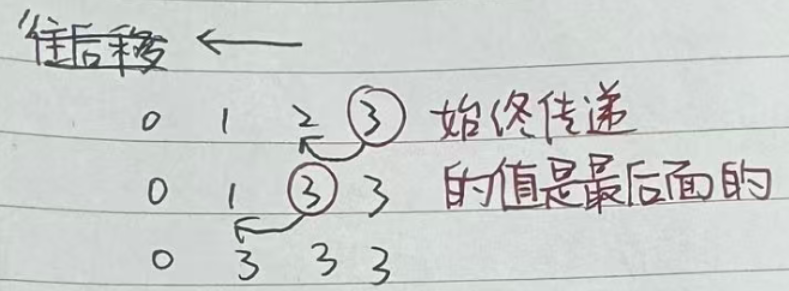 "往后移 ←
0 1 2 3 始终传递
0 1 3 3 的值是最后面的
0 3 3 3